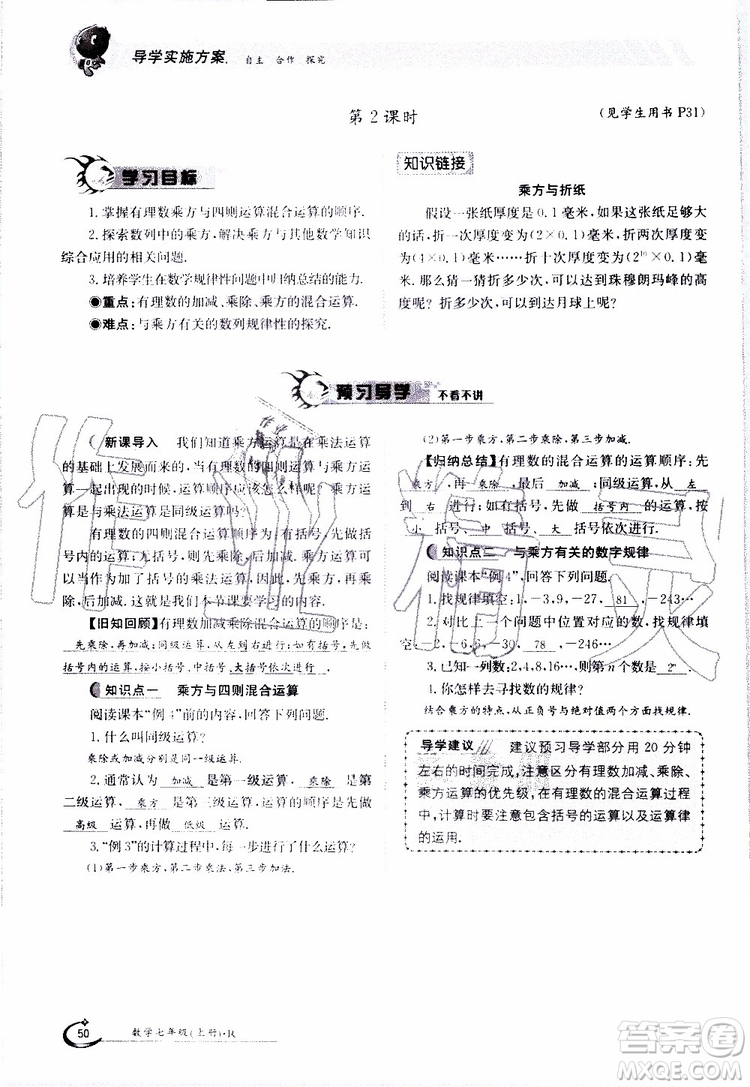 导学实施方案. 自主 合作 探究
第2课时
(见学生用书 P31)
学习目标
1.掌握有理数乘方与四则运算混合运算的顺序.
2.探索数列中的乘方,解决与乘方有关的其他数学知识
综合应用的相关问题.
3.培养学生在数学规律性问题中归纳总结的能力.
●重点:有理数的加减、乘除、乘方的混合运算.
●难点:与乘方有关的数列规律性的探究.
知识链接
乘方与折纸
假设一张纸厚度是0.1毫米,如果这张纸足够大
的话,折一次厚度变为(2×0.1)毫米,折两次厚度变为
(4×0.1)毫米……折十次厚度变为(2¹⁰×0.1)毫
米.那么猜一猜折多少次,可以达到珠穆朗玛峰的高
度呢?折多少次,可以达到月球上呢?
预习导学 不看不讲
新课导入 我们知道乘方运算是在乘法运算
的基础上发展而来的,那么当有理数的乘方与加减乘除
一起出现的时候,运算顺序应该怎么样呢?乘方运
算是与乘法运算同级运算吗?
有理数的四则运算中,如果有括号,先考虑括
号;无括号,则先乘除,后加减.今天我们将在此基
础上,再加上了含括号的乘法运算,因此,先乘方,再
乘除,后加减,这就是本节课要学习的内容.
【旧知回顾】有理数加减乘除混合运算的顺序是:
先乘除,再加减;同级运算,从左到右进行;如有括号,先做
括号内的运算,按小括号、中括号、大括号依次进行.
知识点一 乘方与四则混合运算
阅读课本“例3”前的内容,回答下列问题.
1.什么叫同级运算?
乘除或加减的运算.
2.通常认为 加减 是第一级运算, 乘除 是第
二级运算, 乘方 是第三级运算,运算的顺序是先做
高级 运算,再做 低级 运算.
3.“例3”的计算过程中,每一步进行了什么运算?
(1)第一步乘方,第二步乘法,第三步加法.
(2)第一步乘方,第二步乘除,第三步加减.
【归纳总结】有理数的混合运算的运算顺序:先
乘方 ,再 乘除 ,最后 加减 ;同级运算,从 左
到 右 进行;如有括号,先做 括号内 的运算,按
小 括号、 中 括号、 大 括号依次进行.
知识点二 与乘方有关的数字规律
阅读课本“例4”,回答下列问题.
1.找规律填空:1,-3,9,-27, 81 ,-243…
2.对比上一个问题中位置对应的数,找规律填
空:-2,-6,6,-30, 78 ,-246…
3.已知一列数:2,4,8,16…,则第n个数是 2ⁿ .
1.你怎样去寻找数的规律?
结合乘方的特点,从正负号与绝对值两个方面找规律.
导学建议 建议预习导学部分用20分钟
左右的时间完成,注意区分有理数加减、乘除、
乘方运算的优先级,在有理数的混合运算过程
中,计算时要注意包含括号的运算以及运算律
的运用.
50 数学七年级(上册)·R
作业精灵
答案圈
MXQE.COM